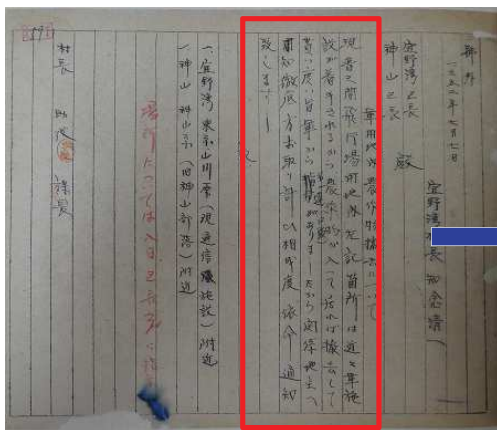 號外
一九五二年七月七日
宜野湾村長 知念清一
宜野湾区長
神山区長 殿
軍用地内農作物撤去について
現普天間飛行場用地内左記箇所は近々軍施
設が着手されるから農作物が入って居れば撤去して
貰い度い旨軍から がありましたから関係地主へ
周知徹底方お取り計い相成度 依命 通知
致します
記
一、宜野湾 東系山川原(現通信施設)附近
一、神山 神山系(旧神山部落)附近
場所については
村長 助役 課長